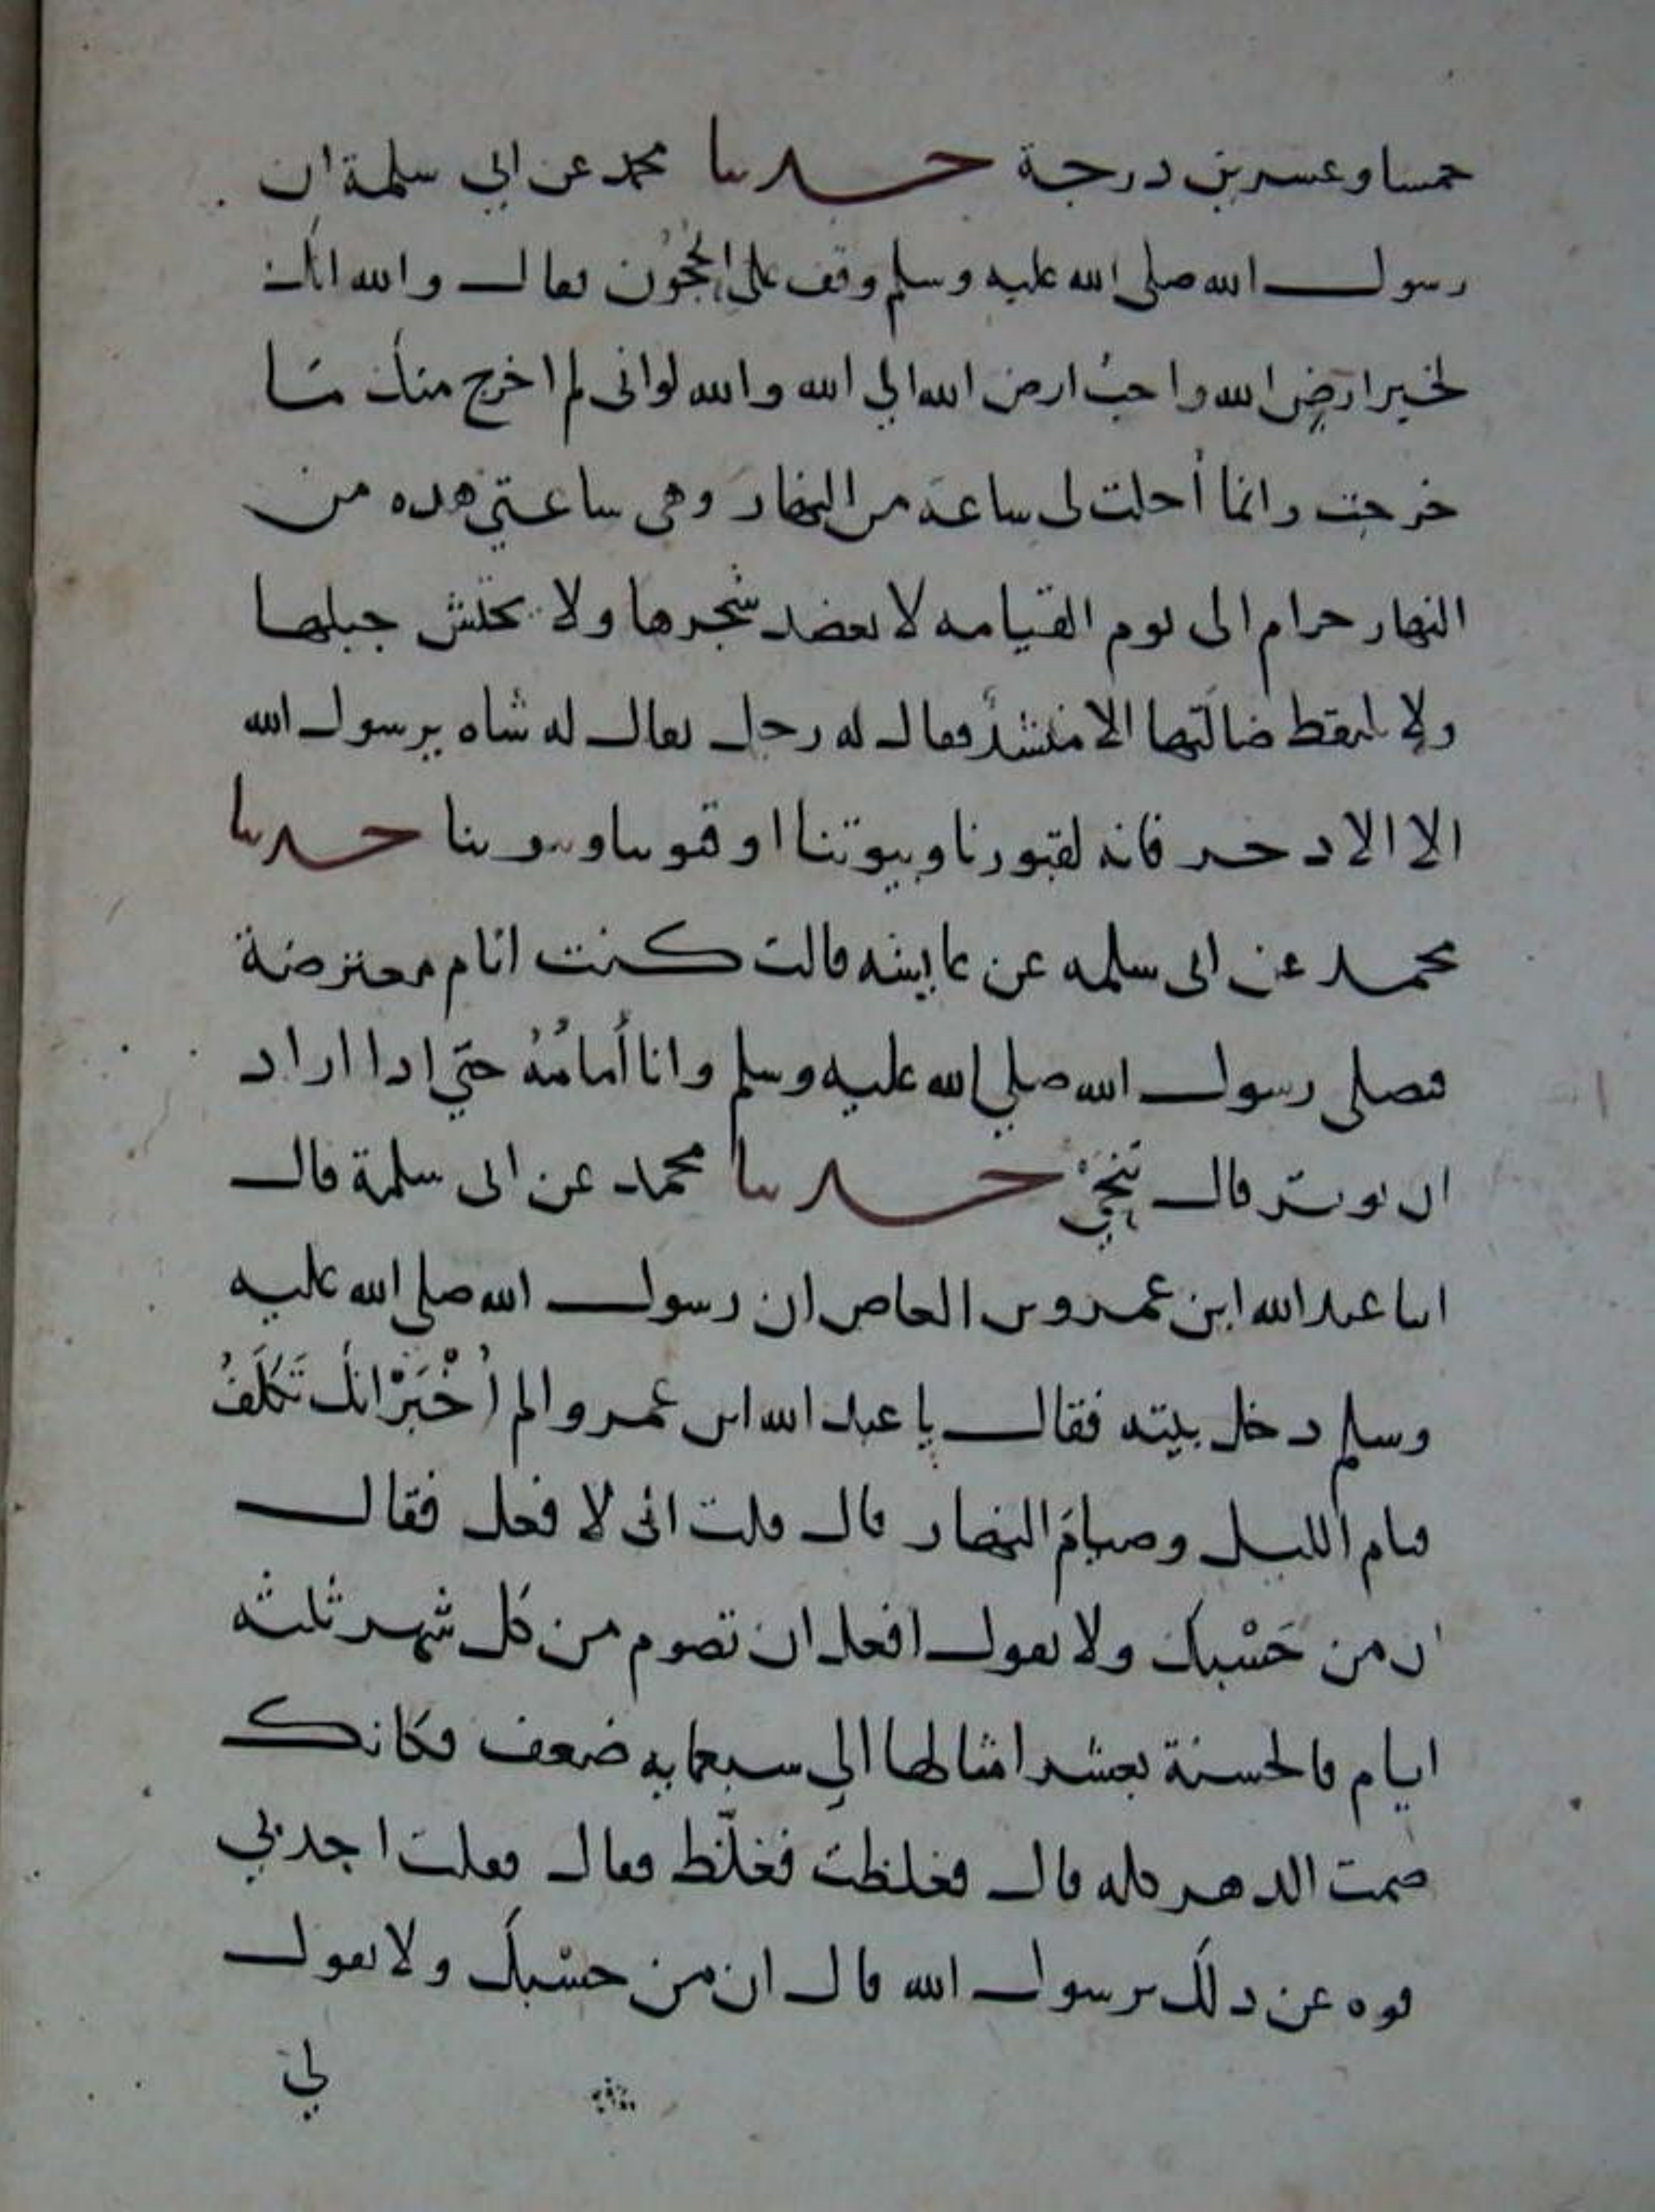 خمسا وعشرين درجة حدثنا محمد عن ابي سلمة ان
رسول الله صلى الله عليه وسلم وقف على الحجُون فقال والله انك
لخير ارض الله واحبُ ارض الله الي الله والله لو انى لم اخرج منك مَا
خرجت وانما أحلت لى ساعة من النهار وهى ساعتي هذه من
النهار حرام الى يوم القيامه لا يعضد شجرها ولا يحتش حبلها
ولا يلتقط ضالتها الا منشد فقال له رجل يقال له شاه يرسول الله
الا الاذخر فانه لقبورنا وبيوتنا او قيوننا وبيوتنا حدثنا
محمد عن ابى سلمه عن عايشه قالت كنت انام معترضة
فصلى رسول الله صلي الله عليه وسلم وانا أمامُهُ حتي اذا اراد
ان يوتر قال تنحيْ حدثنا محمد عن ابى سلمة قال
اتا عبد الله ابن عمرو بن العاص ان رسول الله صلى الله عليه
وسلم دخل بيته فقال يا عبد الله ابن عمرو الم اُخْبَرْ انك تَكَلَّفُ
قيام الليل وصيامَ النهار قال قلت انى لا فعل فقال
ان من حَسْبك ولا يقول افعل ان تصوم من كل شهر ثلثه
ايام فالحسنة بعشر امثالها الي سبعمايه ضعف فكانك
صمت الدهر كله قال فغلظت فغلّظ فقال فقلت اجد بي
قوه عن ذلك يرسول الله قال ان من حسْبكَ ولا يقول
لي